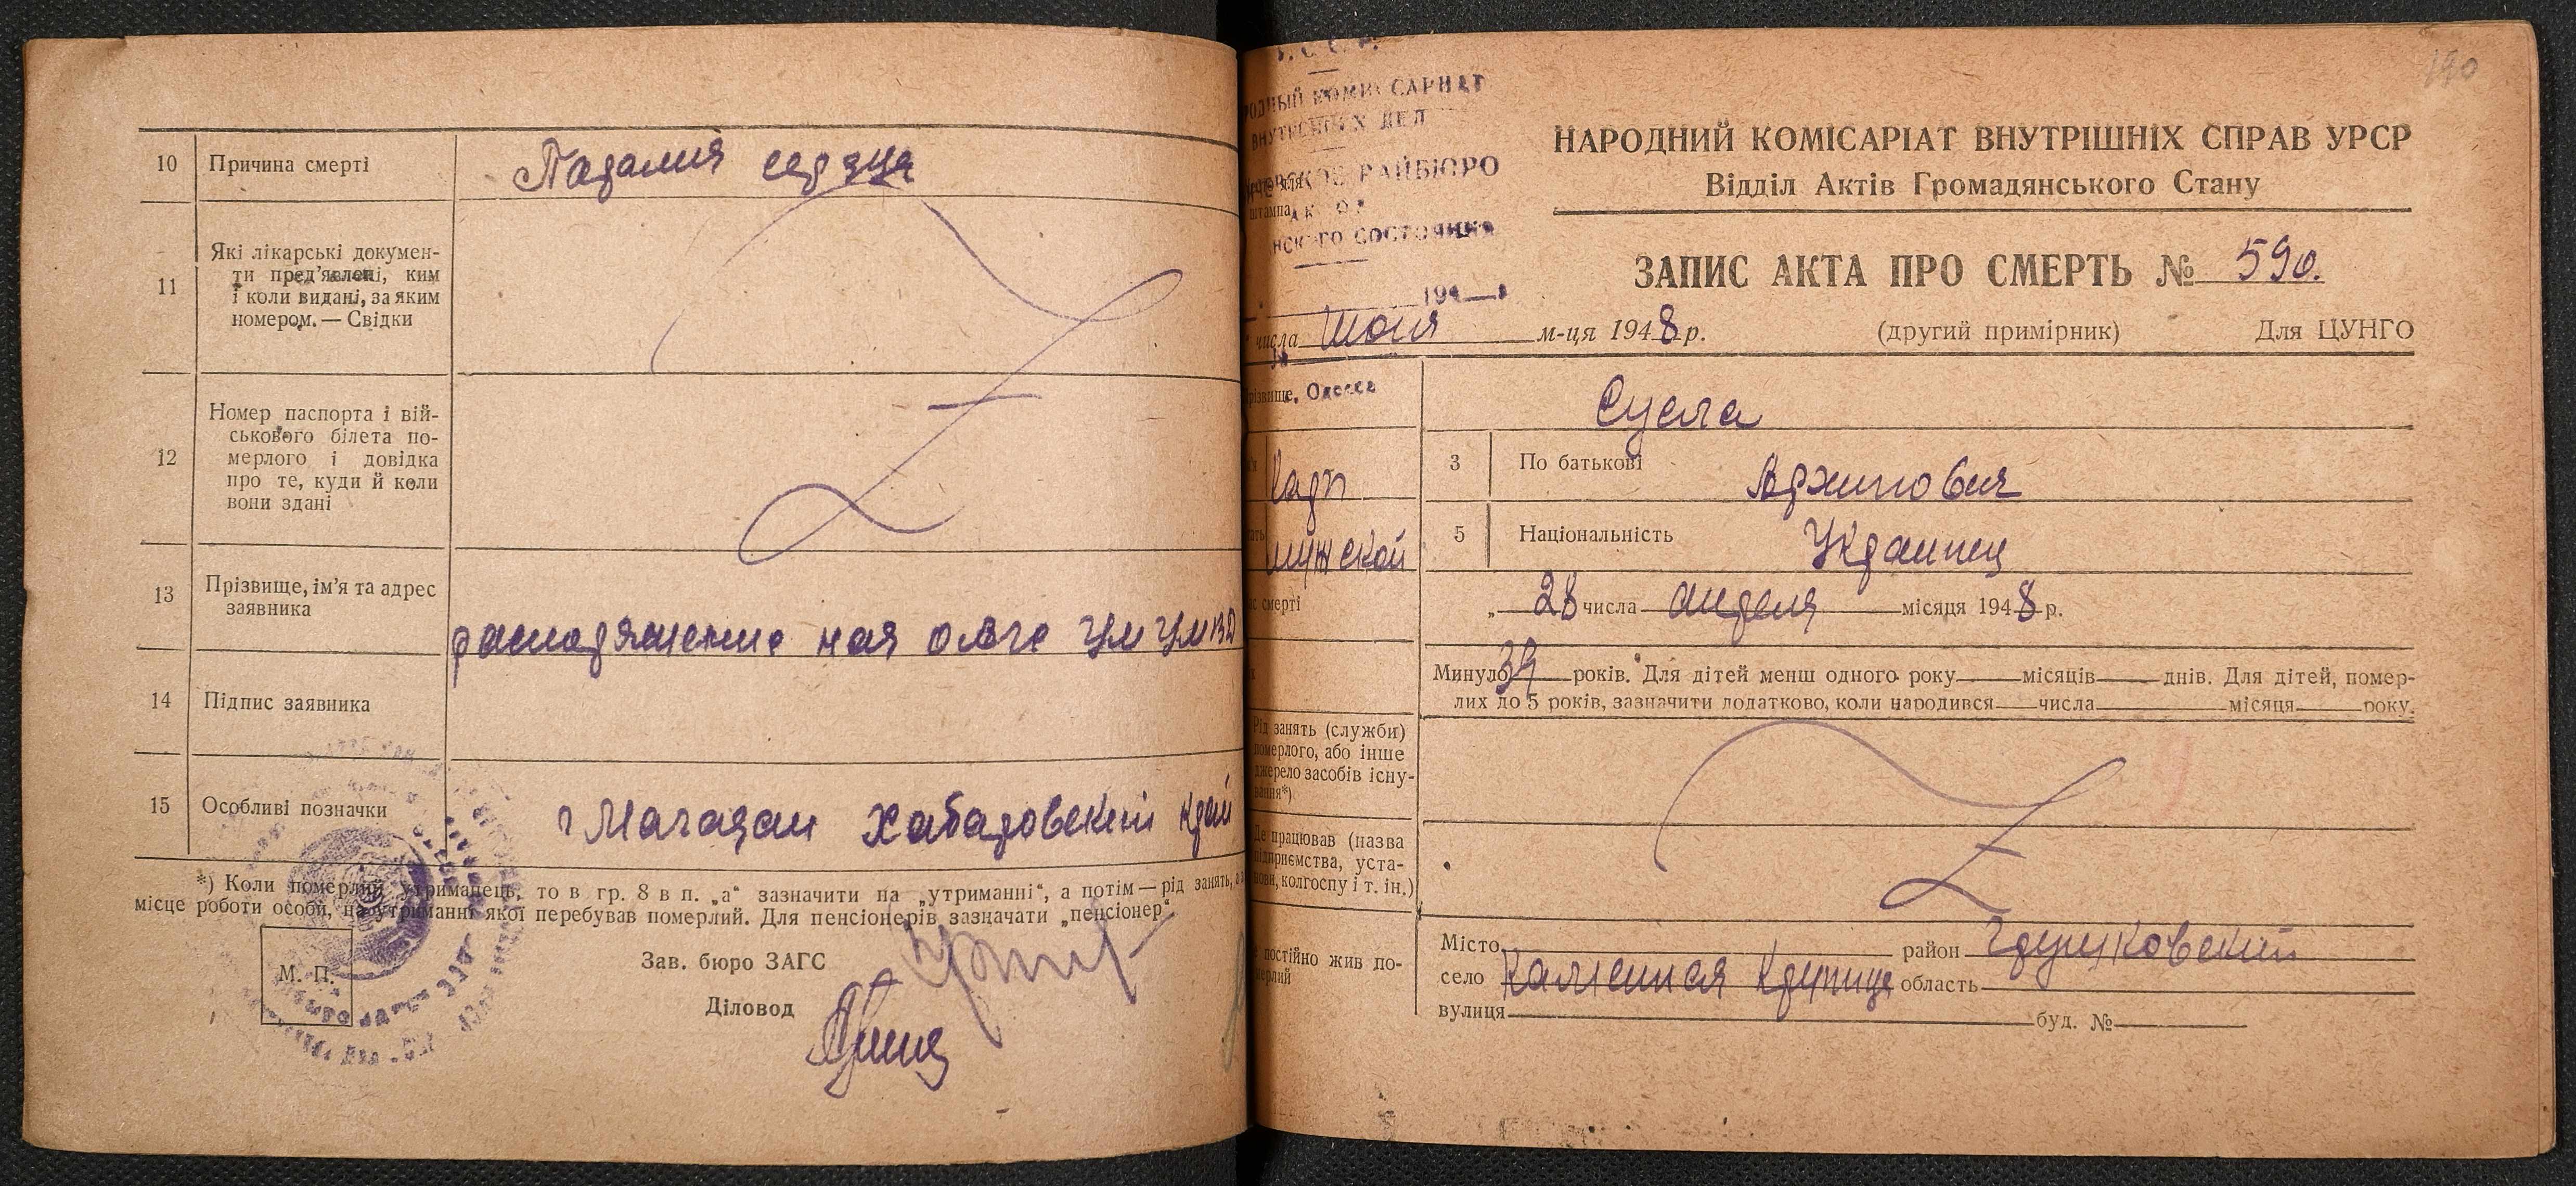 10 Причина смерті
Паралич сердца
11 Які лікарські докумен-
ти пред'явлені, ким
і коли видані, за яким
номером. — Свідки
12 Номер паспорта і вій-
ськового білета по-
мерлого і довідка
про те, куди й коли
вони здані
13 Прізвище, ім'я та адрес
заявника
распоряжение
14 Підпис заявника
15 Особливі позначки
г Магадан Хабаровский край
*) Коли померлий утриманець, то в гр. 8 в п. „а“ зазначити на „утриманні“, а потім — рід занять, а
місце роботи особи, на утриманні якої перебував померлий. Для пенсіонерів зазначати „пенсіонер“
М. П.
Зав. бюро ЗАГС
Діловод
190
КОМИССАРИАТ
ВНУТРЕННИХ ДЕЛ
РАЙБЮРО
штампа
СОСТОЯНИЯ
194
НАРОДНИЙ КОМІСАРІАТ ВНУТРІШНІХ СПРАВ УРСР
Відділ Актів Громадянського Стану
ЗАПИС АКТА ПРО СМЕРТЬ № 590.
числа м-ця 1948 р. (другий примірник) Для ЦУНГО
Одесса
Сусла
3 По батькові
мужской
5 Національність Украинец
смерті
„ 28 числа апреля місяця 1948 р.
Минуло 39 років. Для дітей менш одного року місяців днів. Для дітей, помер-
лих до 5 років, зазначити додатково, коли народився числа місяця року.
Рід занять (служби)
померлого, або інше
джерело засобів існу-
вання*)
Де працював (назва
підприємства, уста-
нови, колгоспу і т. ін.)
постійно жив по-
мерлий
Місто район
село область
вулиця буд. №